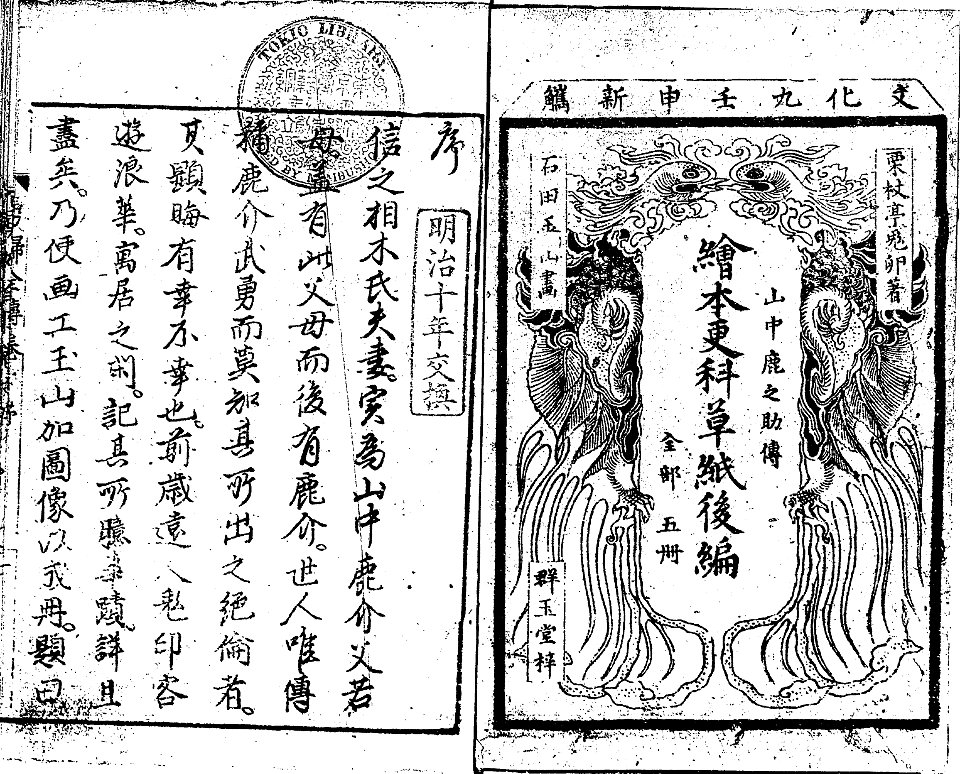 文化九壬申新鐫
栗杖亭鬼卯著
山中鹿之助傳
繪本更科草紙後編
全部五冊
石田玉山畫
群玉堂梓
TOKIO LIBRARY
序
明治十年交換
信之相木氏夫妻。実為山中鹿介父若
母。蓋有此父母而後有鹿介。世人唯傳
稱鹿介武勇而莫知其所出之絶倫者。
其顕晦有幸不幸也。前歳遠人鬼卯客
遊浪華。寓居之閑。記其所聴事蹟。詳且
盡矣。乃使画工玉山加圖像以成冊。題曰